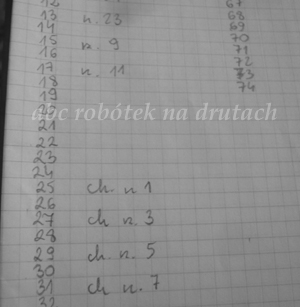 12
13 n. 23
14
15 n. 9
16
17 n. 11
18
19
20
abc robótek na drutach
21
22
23
24
25 ch. n 1
26
27 ch n. 3
28
29 ch. n. 5
30
31 ch n. 7
32
67
68
69
70
71
72
73
74